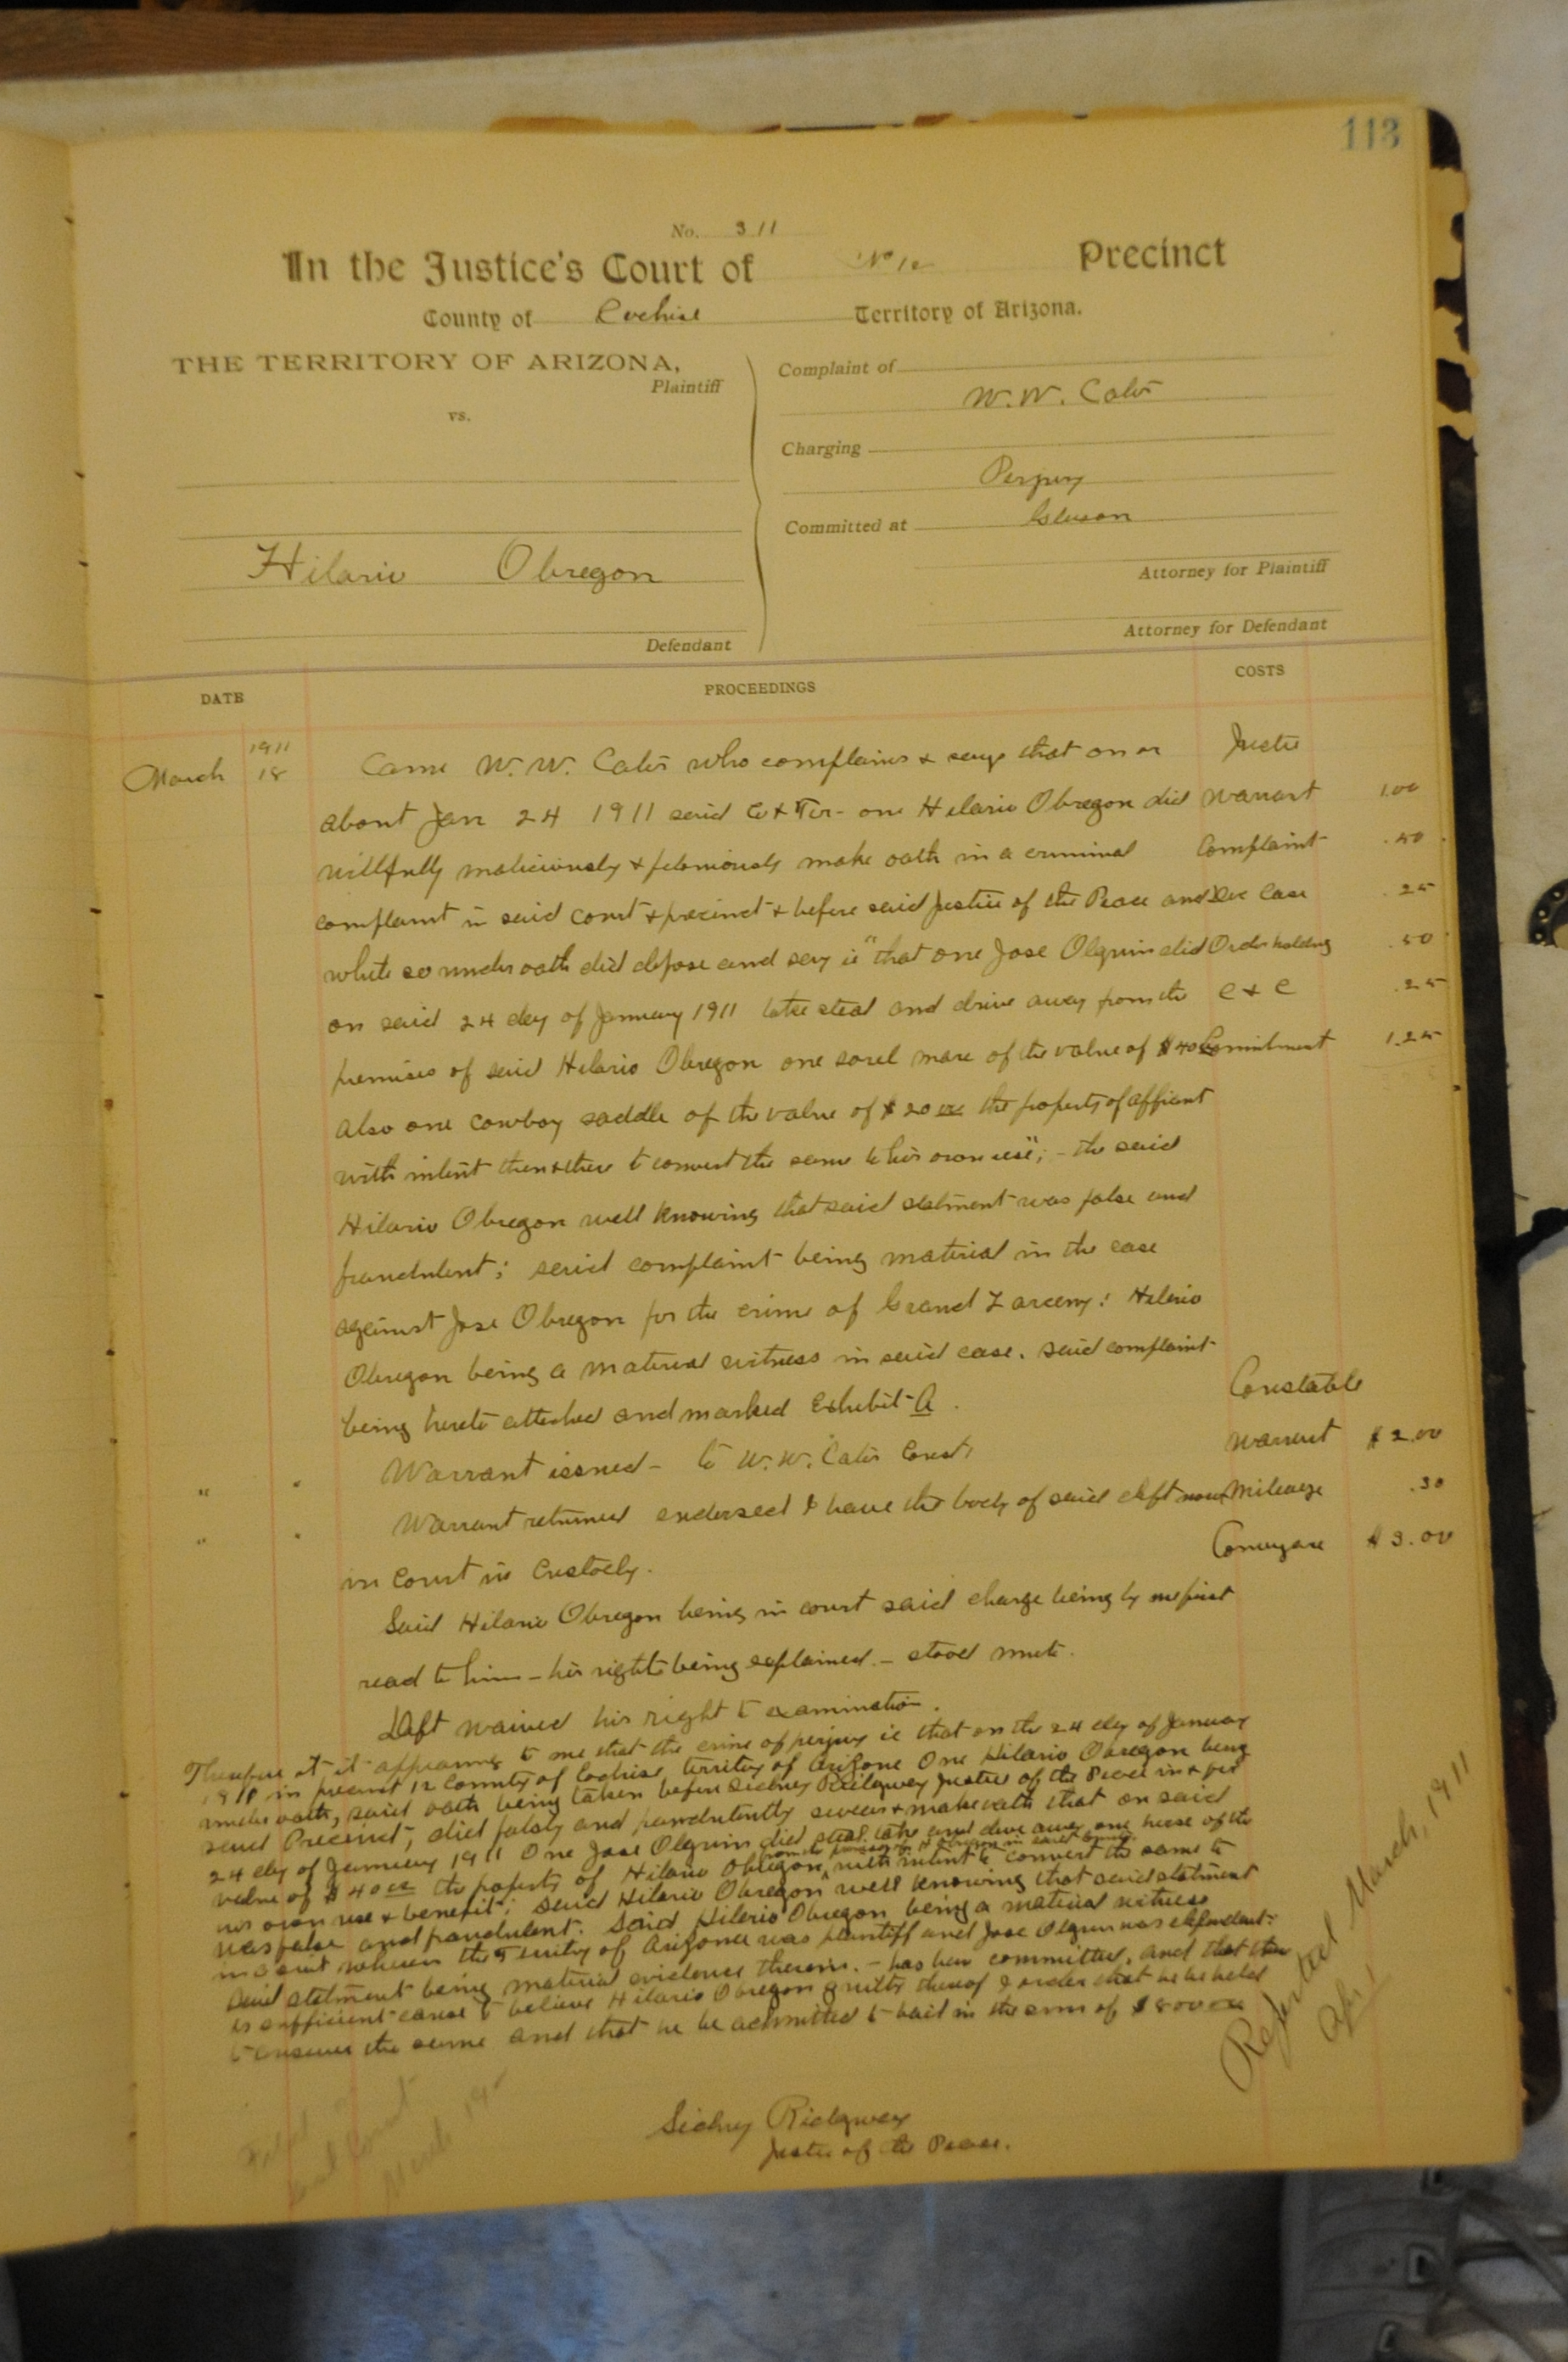 113
No. 311
In the Justice's Court of No 12 Precinct
County of Cochise Territory of Arizona.
THE TERRITORY OF ARIZONA,
Plaintiff
vs.
Hilario Obregon
Defendant
Complaint of
W. W. Cates
Charging
Perjury
Committed at Gleeson
Attorney for Plaintiff
Attorney for Defendant
DATE PROCEEDINGS COSTS
1911
March 18 Came W. W. Cates who complains & says that on or Justice
about Jan 24 1911 said Co & Ter- one Hilario Obregon did Warrant 1.00
willfully maliciously & feloniously make oath in a criminal Complaint .50
complaint in said court & precinct & before said Justice of the Peace and Doc Case .25
while so under oath did depose and say ie "that one Jose Olguin did Order holding .50
on said 24 day of January 1911 take steal and drive away from the C & C .25
premises of said Hilario Obregon one sorel mare of the value of $40 Commitment 1.25
also one cowboy saddle of the value of $20 xx the property of affiant
with intent then & there to convert the same to his own use"; - the said
Hilario Obregon well knowing that said statment was false and
fraudulent; said complaint being material in the case
against Jose Obregon for the crime of Grand Larceny: Hilario
Obregon being a material witness in said case. said complaint
being hereto attached and marked Exhibit A. Constable
" " Warrant issued - to W. W. Cates Const. Warrant $2.00
" " Warrant returned endorsed I have the body of said deft now Mileage .30
in Court in Custody. Conveyance $3.00
Said Hilario Obregon being in court said charge being by me first
read to him - his rights being explained. - stood mute.
Deft waived his right to examination.
Therefore it appearing to me that the crime of perjury ie that on the 24 day of January
1911 in precinct 12 County of Cochise, territory of Arizona One Hilario Obregon being
under oath, said oath being taken before Sidney Ridgway Justice of the Peace in & for
said Precinct; did falsly and fraudulently swear & make oath that on said
24 day of January 1911 One Jose Olguin did steal take and drive away one horse of the
value of $40 xx the property of Hilario Obregon, with intent to convert the same to
from the premises of H Obregon in said County
his own use & benefit; said Hilario Obregon well knowing that said statment
was false and fraudulent. Said Hilario Obregon being a material witness
in a suit wherein the Territory of Arizona was plaintiff and Jose Olguin was defendant:
said statment being material evidence therein. - has been committed, and that there
is sufficient cause to believe Hilario Obregon guilty thereof I order that he be held
to answer the same and that he be admitted to bail in the sum of $800 xx
Sidney Ridgway
Justice of the Peace.
Reported March, 1911